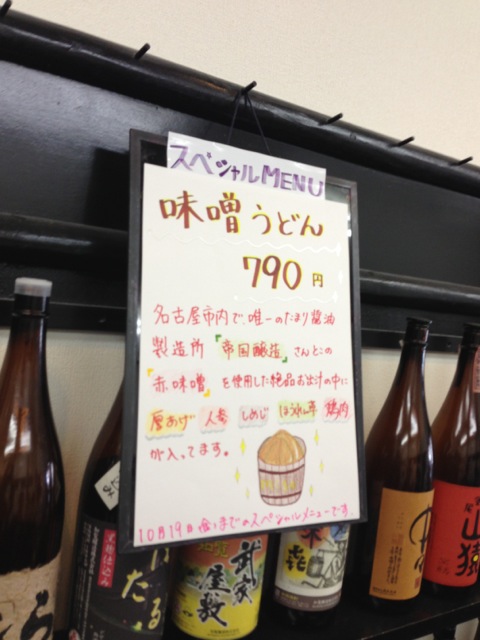 スペシャルMENU
味噌うどん
790円
名古屋市内で、唯一のたまり醤油
製造所『帝国醸造』さんとこの
「赤味噌」を使用した絶品お出汁の中に
厚あげ 人参 しめじ ほうれん草 鶏肉
が入ってます。
10月19日(金)までのスペシャルメニューです。
黒麹仕込み
武家
屋敷
山猿